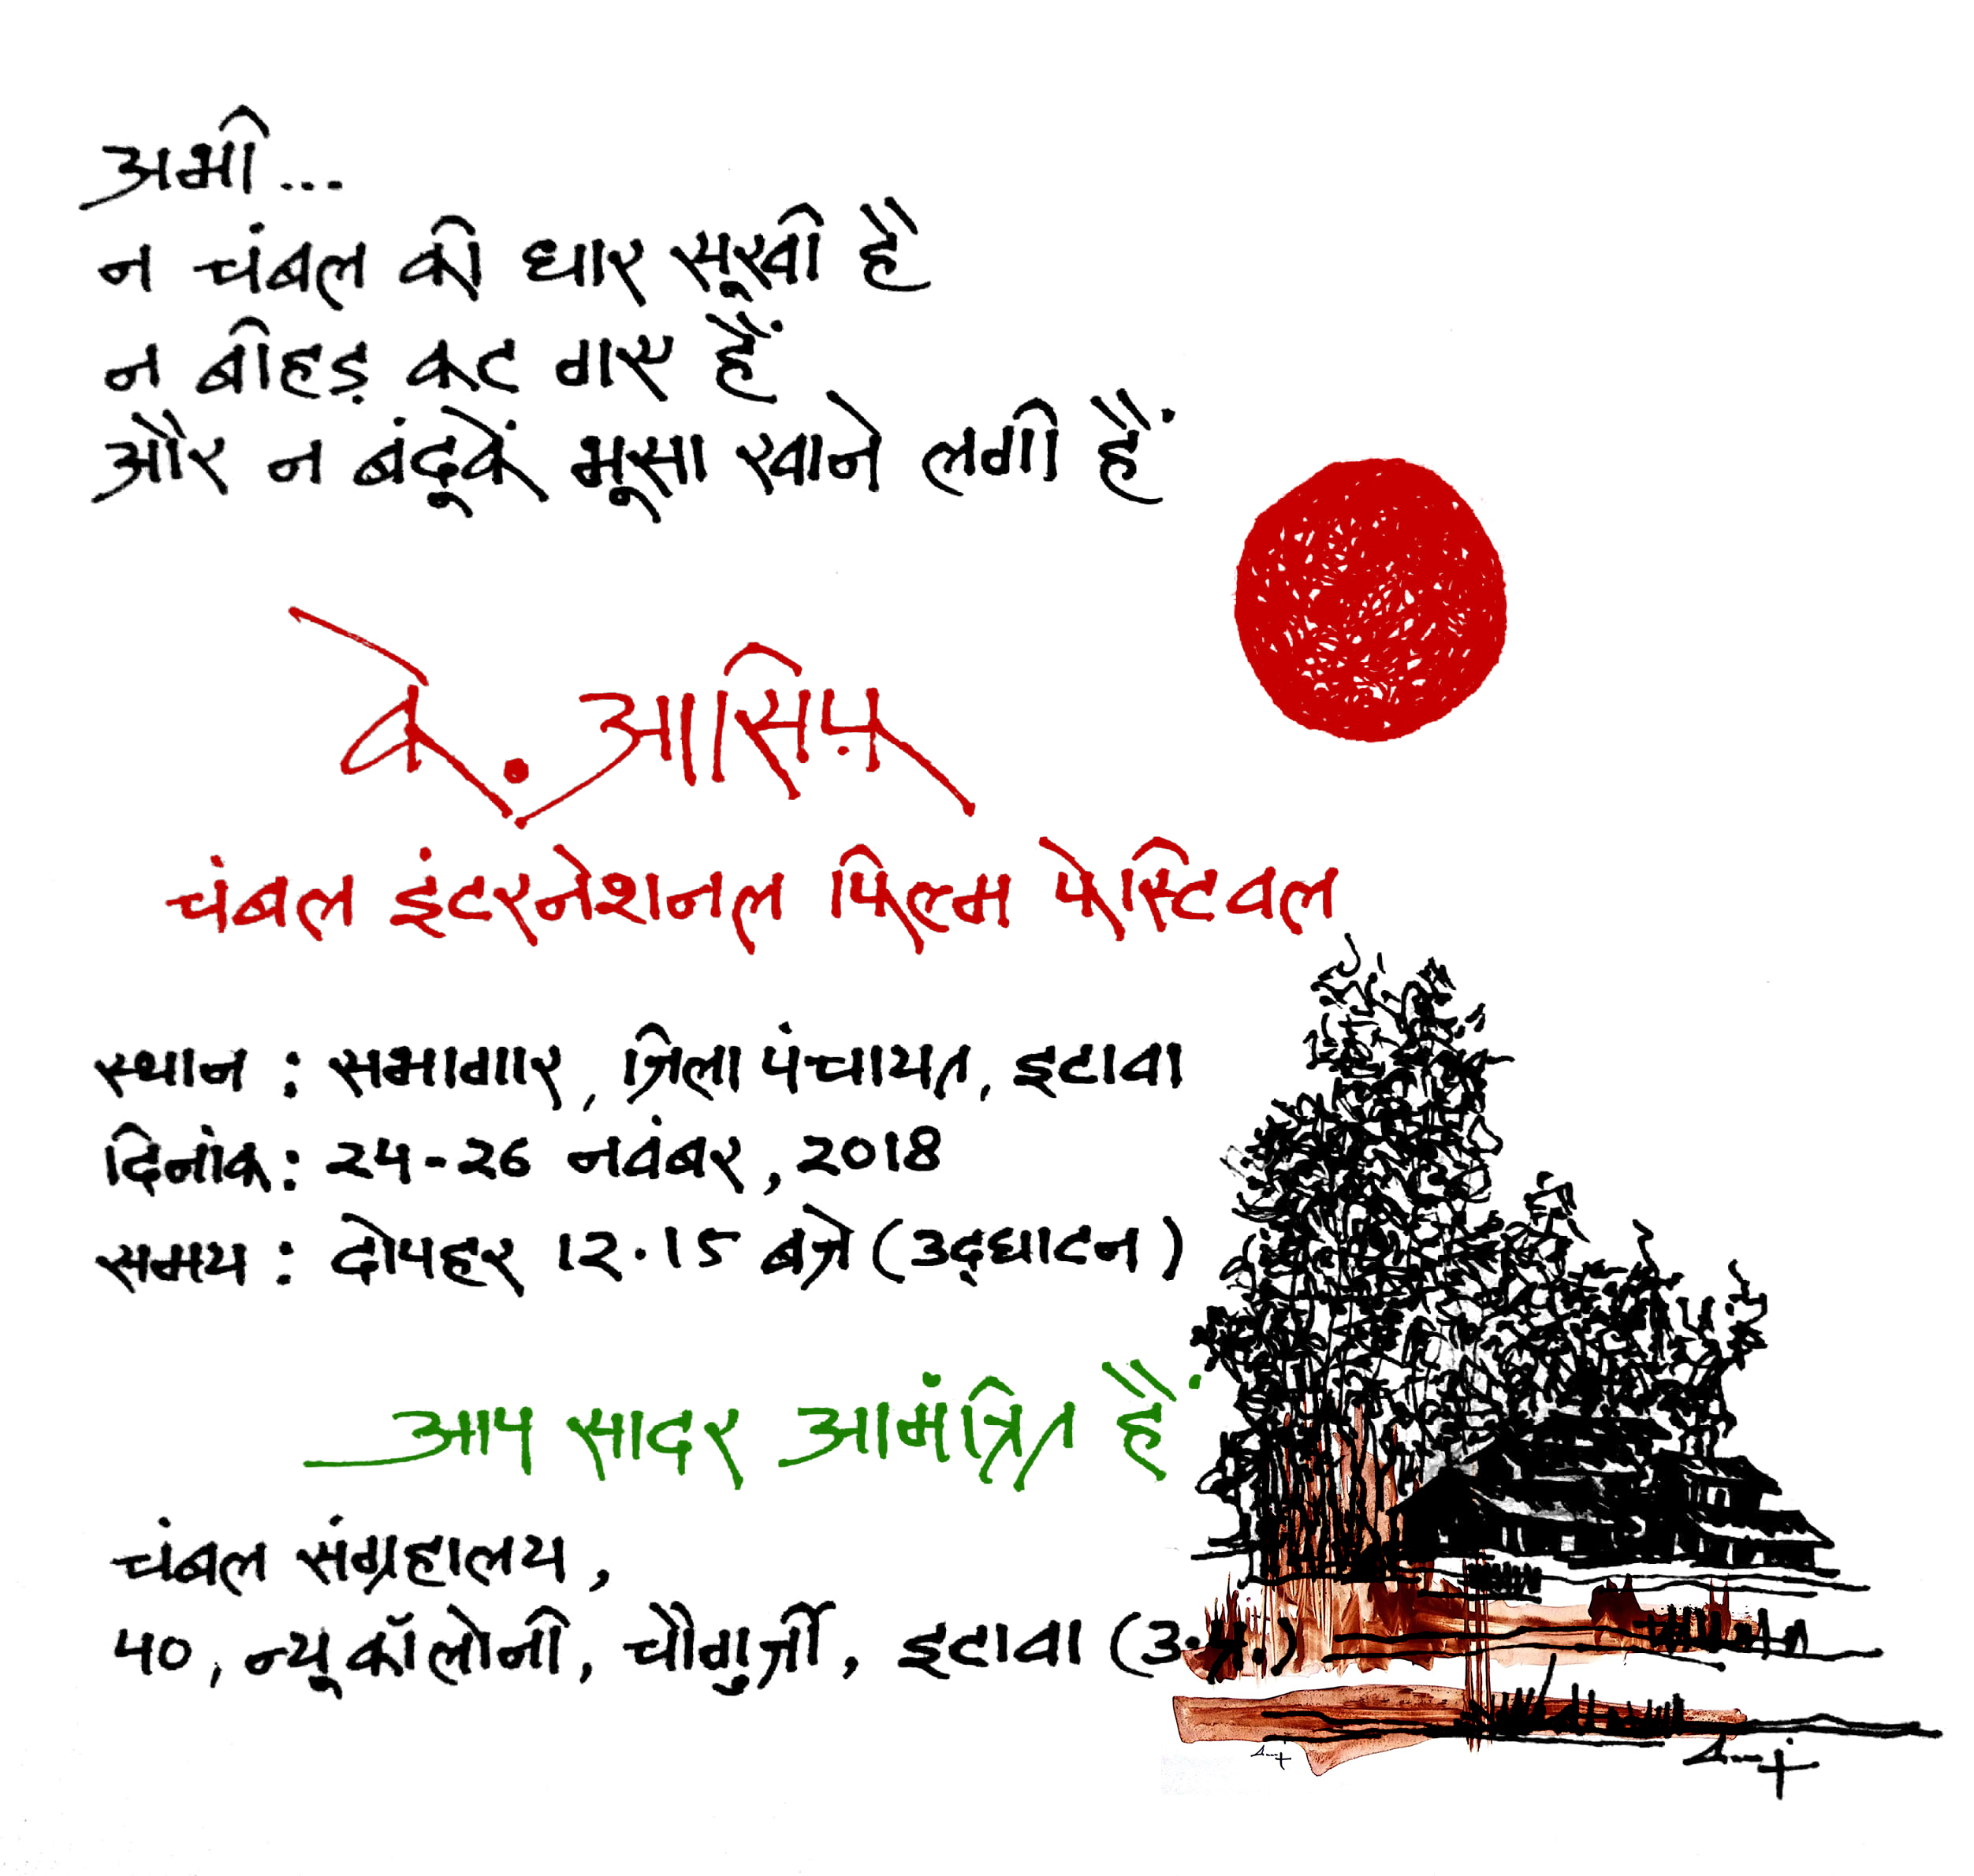 अभी...
न चंबल की धार सूखी है
न बीहड़ कट गए हैं
और न बंदूकें भूसा खाने लगी हैं
के. आसिफ़
चंबल इंटरनेशनल फिल्म फेस्टिवल
स्थान : सभागार, जिला पंचायत, इटावा
दिनांक : 24-26 नवंबर, 2018
समय : दोपहर 12.15 बजे (उद्घाटन)
आप सादर आमंत्रित हैं
चंबल संग्रहालय,
40, न्यू कॉलोनी, चौगुर्जी, इटावा (उ.प्र.)